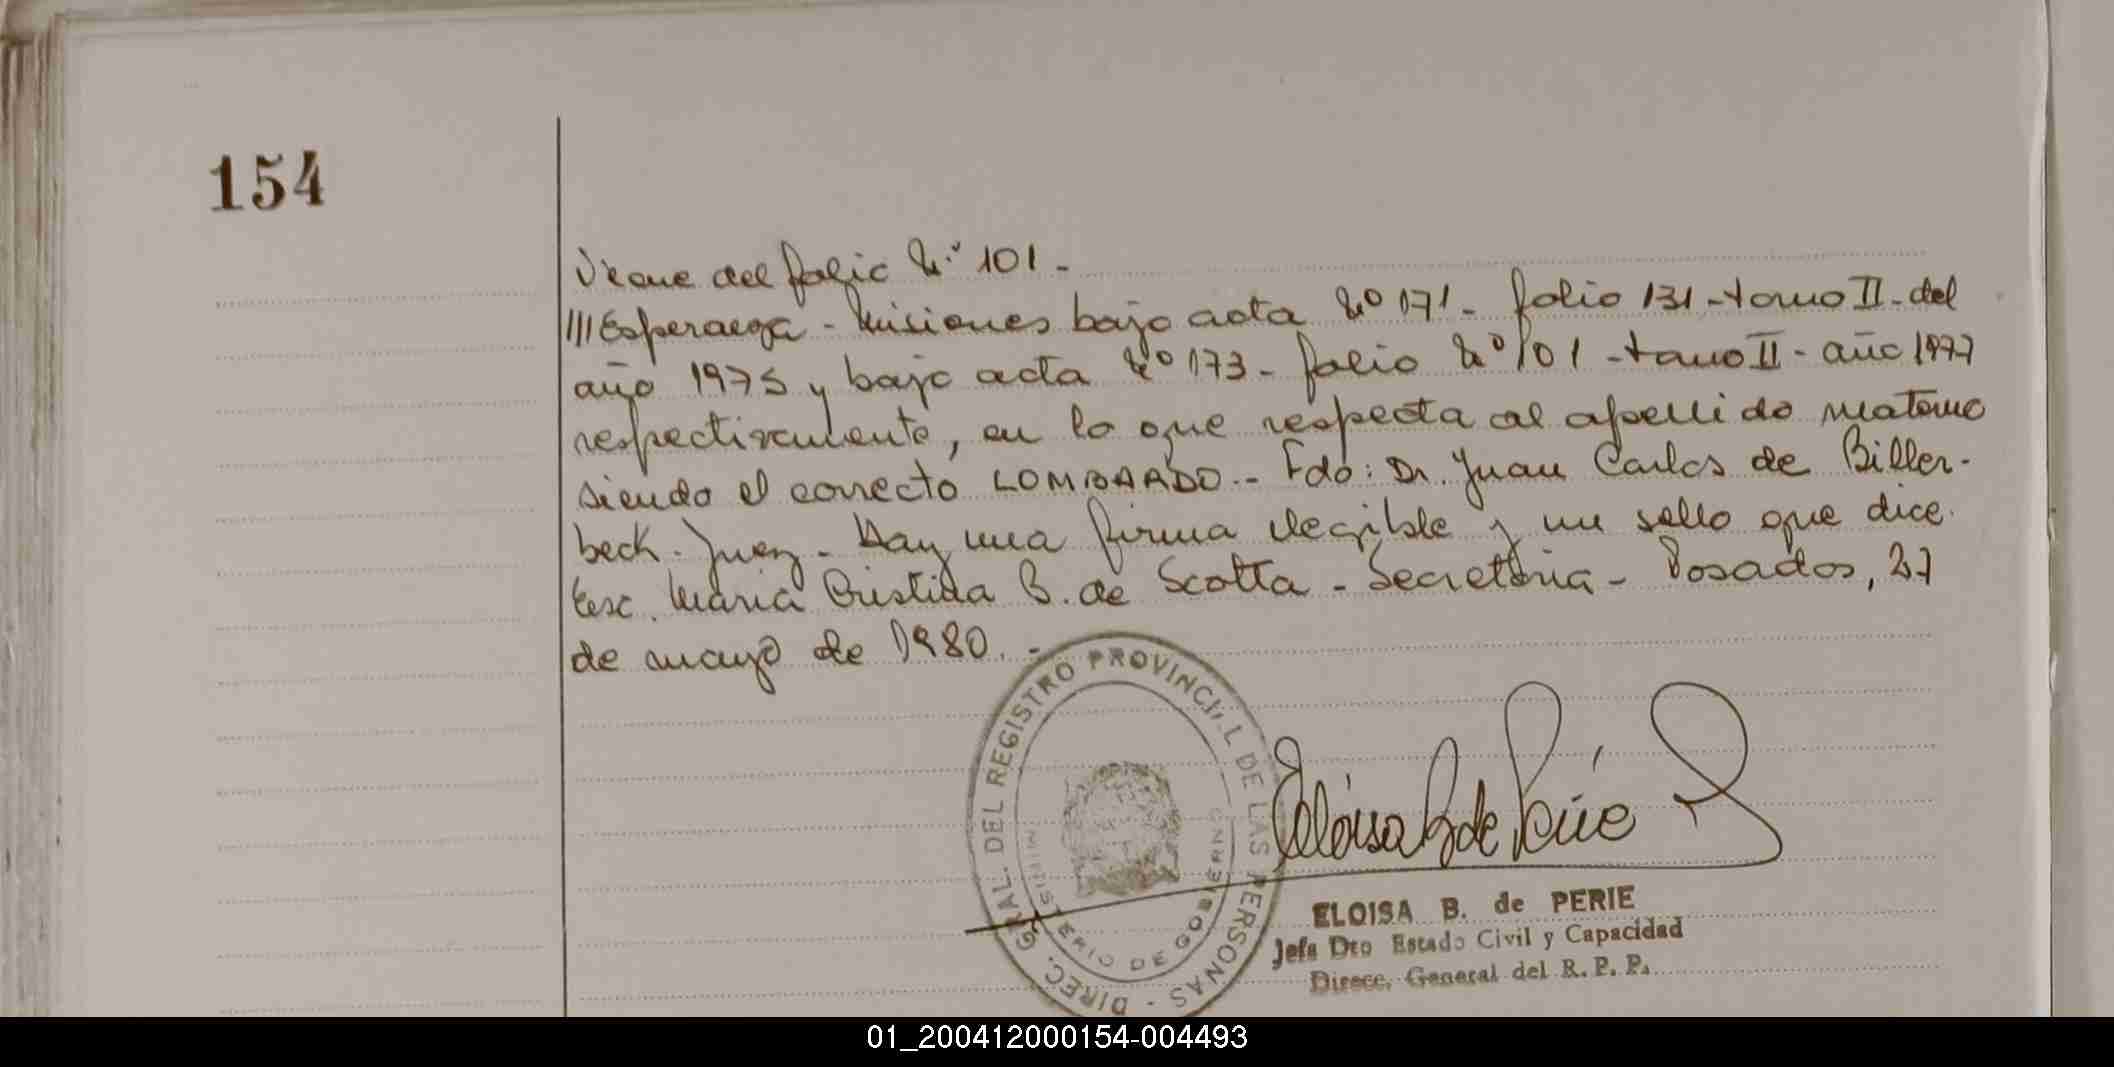 154
Viene del folio Nº 101 -
///Esperanza - Misiones bajo acta Nº 171 - folio 131 - tomo II - del
año 1975 y bajo acta Nº 173 - folio Nº 101 - tomo II - año 1977
respectivamente, en lo que respecta al apellido materno
siendo el correcto LOMBARDO.- Fdo: Dr. Juan Carlos de Biller-
beck. Juez - Hay una firma ilegible y un sello que dice.
Esc. María Cristina B. de Scotta - Secretaria - Posadas, 27
de mayo de 1980. -
DIREC. GRAL. DEL REGISTRO PROVINCIAL DE LAS PERSONAS -
MINISTERIO DE GOBIERNO
Eloisa B de Périe
ELOISA B. de PERIE
Jefa Dto Estado Civil y Capacidad
Direcc. General del R. P. P.
01_200412000154-004493